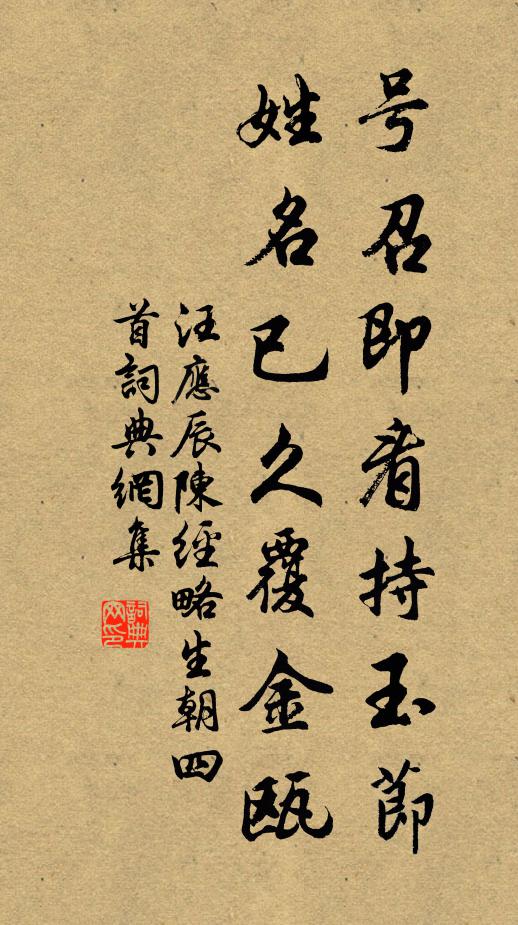 号召即看持玉節
姓名已久覆金甌
汪應辰陳經略生朝四
首詞典網集
詞典
网印